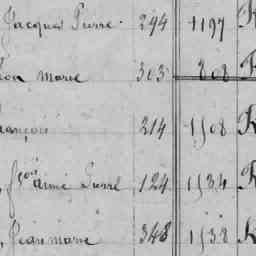 Jacques Pierre. 294 1197 K
marie 303 808 K
françois 214 1508 K
fçois aimé Pierre 124 1534 K
Jean marie 348 1538 K